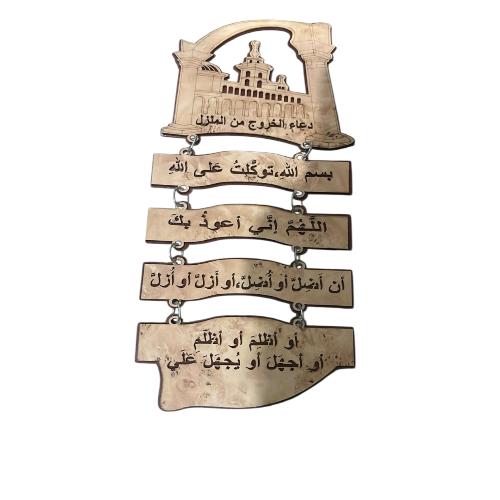 دعاء الخروج من المنزل
بسم الله،توكلتُ على الله
اللَّهُمَّ إنَّي أعوذُ بك
أن أَضِلَّ أو أُضِلَّ،أو أَزلَّ أو أُزلَّ
أو أَظلِمَ أو أُظلَمِ
أو أجهَلَ أو يُجهَلَ عَلَي